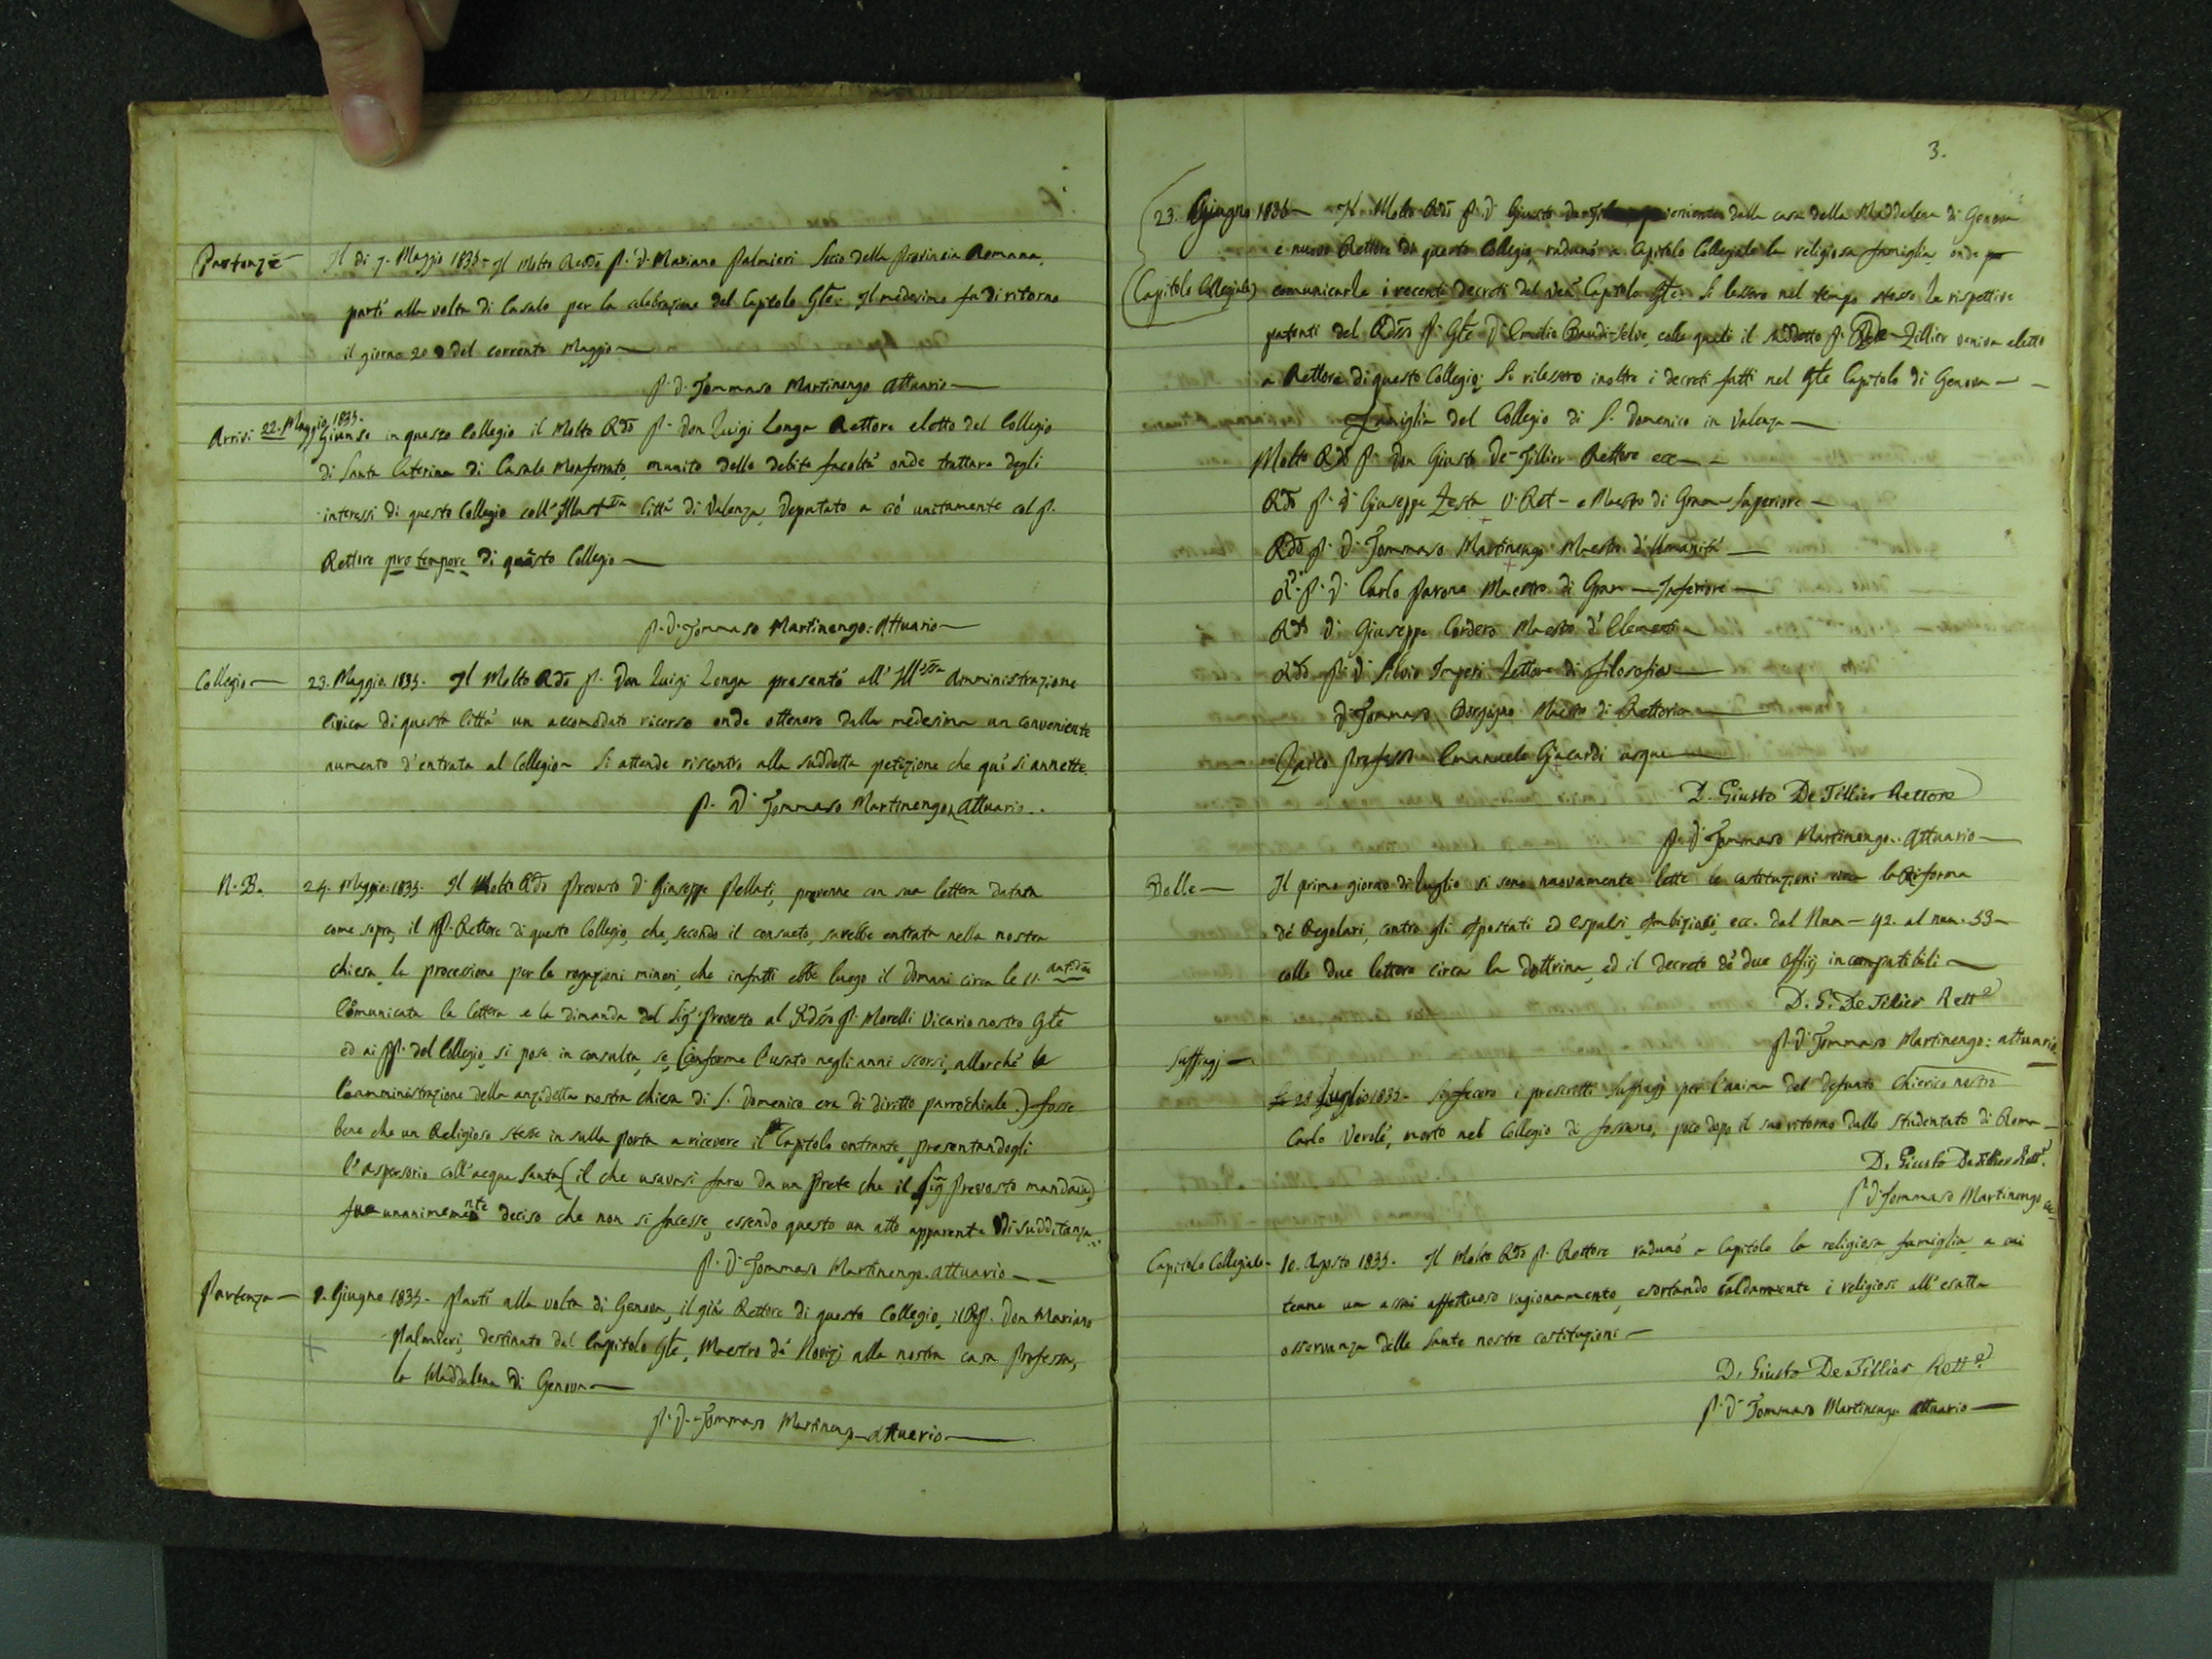 Partenze — Il dì 7. Maggio 1835 - Il Molto Revdo P. D. Mariano Palmieri Socio della Provincia Romana,
partì alla volta di Casale per la celebrazione del Capitolo Gle. Il medesimo fu di ritorno
il giorno 20 del corrente Maggio —
P. D. Tommaso Martinengo Attuario —
Arrivi 22. Maggio 1835. Giunse in questo Collegio il Molto Rdo P. Don Luigi Longa Rettore eletto del Collegio
di Santa Caterina di Casale Monferrato, munito delle debite facoltà onde trattare degli
interessi di questo Collegio coll' Illustma Città di Valenza, Deputato a ciò unitamente col P.
Rettore pro tempore di questo Collegio —
P. D. Tommaso Martinengo: Attuario —
Collegio — 23. Maggio. 1835. Il Molto Rdo P. Don Luigi Longa presentò all' Illma Amministrazione
Civica di questa Città un accomodato ricorso onde ottenere dalla medesima un conveniente
aumento d'entrata al Collegio — Si attende riscontro alla suddetta petizione che quì si annette.
P. D. Tommaso Martinengo, Attuario..
N. B. 24. Maggio. 1835. Il Molto Rdo Prevosto D. Giuseppe Pellati, prevenne con sua lettera datata
come sopra, il P. Rettore di questo Collegio, che, secondo il consueto, sarebbe entrata nella nostra
chiesa, la processione per le rogazioni minori, che infatti ebbe luogo il domani circa le 11. antidne
Comunicata la lettera e la dimanda del Sig. Prevosto al Rdmo P. Morelli Vicario nostro Gle
ed ai PP. del Collegio, si pose in consulta, se, (conforme l'usato negli anni scorsi, allorchè la
l'amministrazione della anzidetta nostra chiesa di S. Domenico era di diritto parrochiale.) fosse
bene che un Religioso stesse in sulla porta a ricevere il Capitolo entrante, presentandogli
l'aspersorio coll'acqua santa (il che usavasi fare da un Prete che il Sig. Prevosto mandava)
fu unanimemente deciso che non si facesse, essendo questo un atto apparente di sudditanza..
P. D. Tommaso Martinengo. Attuario —
Partenza — Giugno 1835. Partì alla volta di Genova, il già Rettore di questo Collegio, il P. Don Mariano
Palmieri, destinato dal Capitolo Gle, Maestro de' Novizj alla nostra casa Professa,
la Maddalena di Genova —
P. D. Tommaso Martinengo Attuario —
3.
23. Giugno 1836 — Il Molto Rdo P. D. Giusto veniente dalla casa della Maddalena di Genova
e nuovo Rettore di questo Collegio, radunò a Capitolo Collegiale la religiosa famiglia, onde
(Capitolo Collegiale) comunicarle i recenti decreti del Ven. Capitolo Gle. Si lessero nel tempo stesso le rispettive
patenti del Rdmo P. Gle D. Emilio Baudi-Selve, colle quali il suddetto P. De-Tillier veniva eletto
a Rettore di questo Collegio; Si rilessero inoltre i decreti fatti nel Gle Capitolo di Genova —
Famiglia del Collegio di S. Domenico in Valenza —
Molto Rdo P. Don Giusto De-Tillier Rettore ecc —
Rdo P. D. Giuseppe Testa V. Ret - e Maestro di Gram - Superiore —
Rdo P. D. Tommaso Martinengo Maestro d'Umanità —
Rd. P. D. Carlo Pavone Maestro di Gram — Inferiore —
Rdo D. Giuseppe Cordero Maestro d'Elementi —
Rdo P. D. Silvio Imperi Lettore di Filosofia —
D. Tommaso Borgogno Maestro di Rettorica —
Laico Professo Emanuele Giacardi
D. Giusto De Tillier Rettore
P. D. Tommaso Martinengo. Attuario —
Bolle — Il primo giorno di Luglio si sono nuovamente lette le costituzioni circa la Riforma
de' Regolari, contro gli Apostati ed Espulsi, Ambiziosi, ecc. dal Num — 42. al num. 53 —
colle due lettere circa la dottrina, ed il decreto de' due Officj incompatibili —
D. G. De Tillier Rette
P. D. Tommaso Martinengo: attuario.
Suffragj —
28 Luglio 1835 — Si fecero i prescritti Suffragj per l'anima del defunto Chierico nostro
Carlo Verolè, morto nel Collegio di Fossano, poco dopo il suo ritorno dallo Studentato di Roma —
D. Giusto De Tillier Rette.
P. D. Tommaso Martinengo
Capitolo Collegiale — 10. Agosto 1835. Il Molto Rdo P. Rettore radunò a Capitolo la religiosa famiglia a cui
tenne un assai affettuoso ragionamento, esortando caldamente i religiosi all'esatta
osservanza delle sante nostre costituzioni —
D. Giusto De Tillier Rette
P. D. Tommaso Martinengo Attuario —